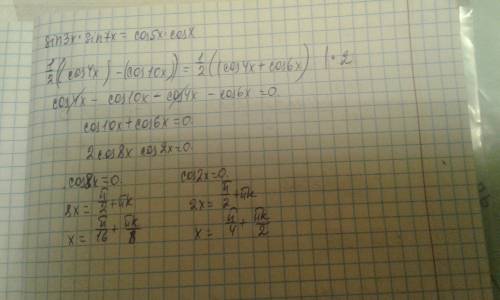 sin3x·sin7x = cos5x·cosx
1/2((cos4x) - (cos10x)) = 1/2((cos4x + cos6x) | · 2
cos4x - cos10x - cos4x - cos6x = 0.
cos10x + cos6x = 0.
2cos8x cos2x = 0.
cos8x = 0. cos2x = 0.
8x = π/2 + πk 2x = π/2 + πk
x = π/16 + πk/8 x = π/4 + πk/2